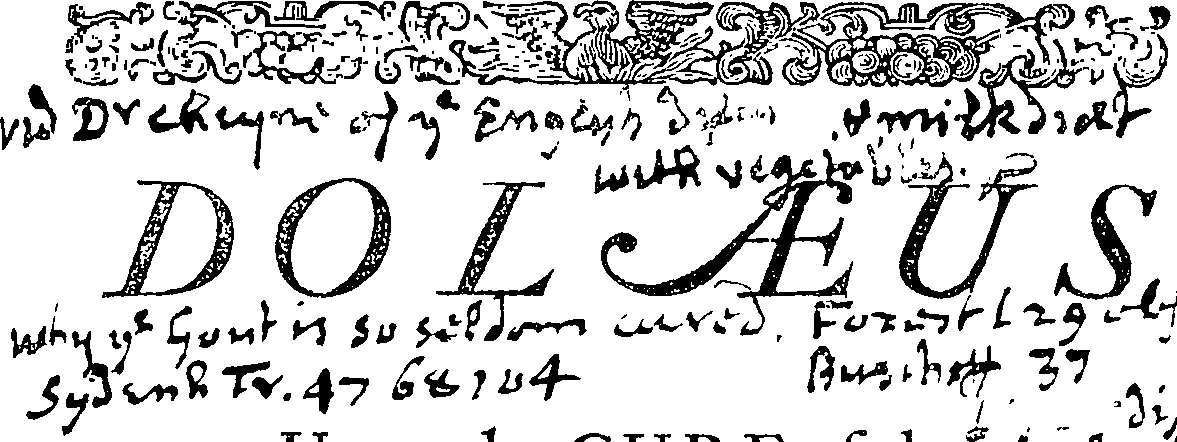 vid Dr Cheyne of ye English & milk diæt
with vegetables.
DOLÆUS
why ye Gout is so seldom cured. Forest L 29
Sydenh Tr. 47 68 104 37
CURE of